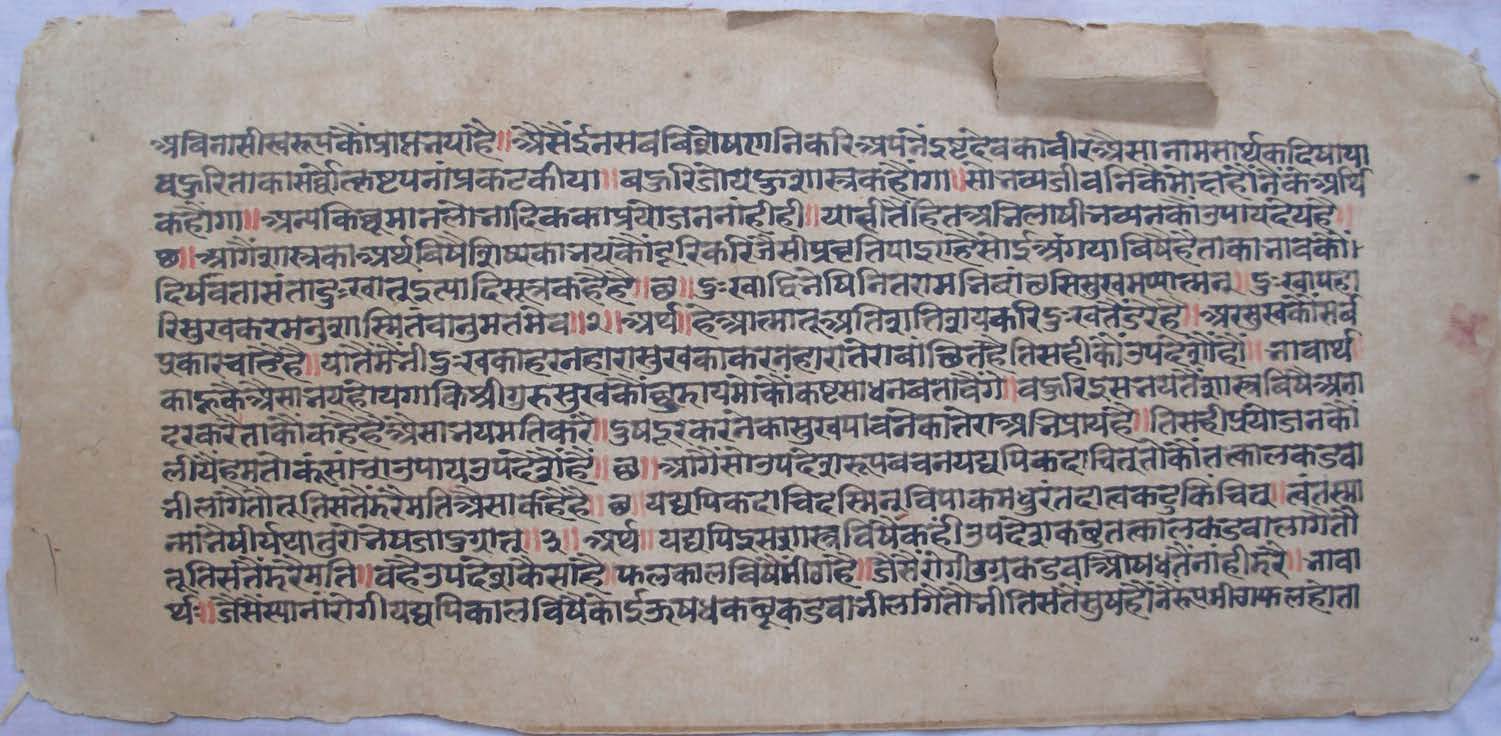 अविनासीस्वरूपकौंप्राप्तभयाहै॥ अैसैंईनसबविशेषणनिकरिअपनैंइष्टदेवकावीरअैसानामसार्थकदिषाया
बहुरिताकासर्वोत्कृष्टपनांप्रकटकीया॥ बहुरिजोयहुशास्त्रकहौंगा॥ सोभव्यजीवनिकैमोक्षहोंनैंकेअर्थि
कहौंगा॥ अन्यकिछूमानलोभादिककाप्रयोजननांहीही॥ याहीतैंहितअभिलाषीभव्यनकौंउपायदेयहै॥
छ॥ आगैंशास्त्रकाअर्थविषैशिष्यकाभयकौंदूरिकरिजैसीप्रवृतिपाइएहैसोईअंगयाविषैहैताकाभावकों।
दिर्षावतासंतादुःखातूइत्यादिसूत्रकहैहै॥ छ॥ दुःखाद्विभेषिनितरामभिवांछसिसुखमप्यात्मन्॥ दुःखापहा
रिसुखकरमनुशास्मितवानुमतमेव॥२॥ अर्थ॥ हेआत्मातूअतिशातिशयकरिदुःखतैंडरैहै॥ अरसुखकौंसर्व
प्रकारचाहैहै॥ यातैंमैंभीदुःखकाहरनहारासुखकाकरनहारातेरावांछितहैतिसहीकौंउपदेशौंहौं॥ भावार्थ
काहूकैअैसाभयहोयगाकिश्रीगुरुसुखकौंछुडायमोकोंकष्टसाधनबतावैंगे॥ बहुरिइसभयतैंशास्त्रविषैअना
दरकरेताकौंकहैहैअैसाभयमतिकरो॥ दुषदूरकरनेकासुखपावनेकातेराअभिप्रायहै॥ तिसहीप्रयोजनकौं
लीयैंहमतोकूंसांचाउपायउपदेशैंहैं॥ छ॥ आगैंसोउपदेशरूपबचनयद्यपिकदाचित्तोकौंतत्कालकडवा
भीलागैतोतूतिसतैंमतडरैमतिअैसाकहैहै॥ छ॥ यद्यपिकदाचिदस्मिन्विपाकमधुरंतदात्वकटुकिंचित्॥ त्वंतस्मा
न्माभैषीर्यथातुरोभेषजादुग्रात्॥३॥ अर्थ॥ यद्यपिइसशास्त्रविषैकहीउपदेशकछूतत्कालकडवालागैतौ
तूतिसतैंडरैमति॥ वहैउपदेशकैसाहै॥ फलकालविषैंमीठाहै॥ जैसैंरोगीउग्रकडवाऔषधतैंनांहीडरै॥ भावा
र्थ॥ जैसैंस्यानांरोगीयद्यपिकालविषैकोईऊषधकछूकडवाभीलागैतौभीतिसतैंसुषहोंनेंरूपमीठाफलहोता